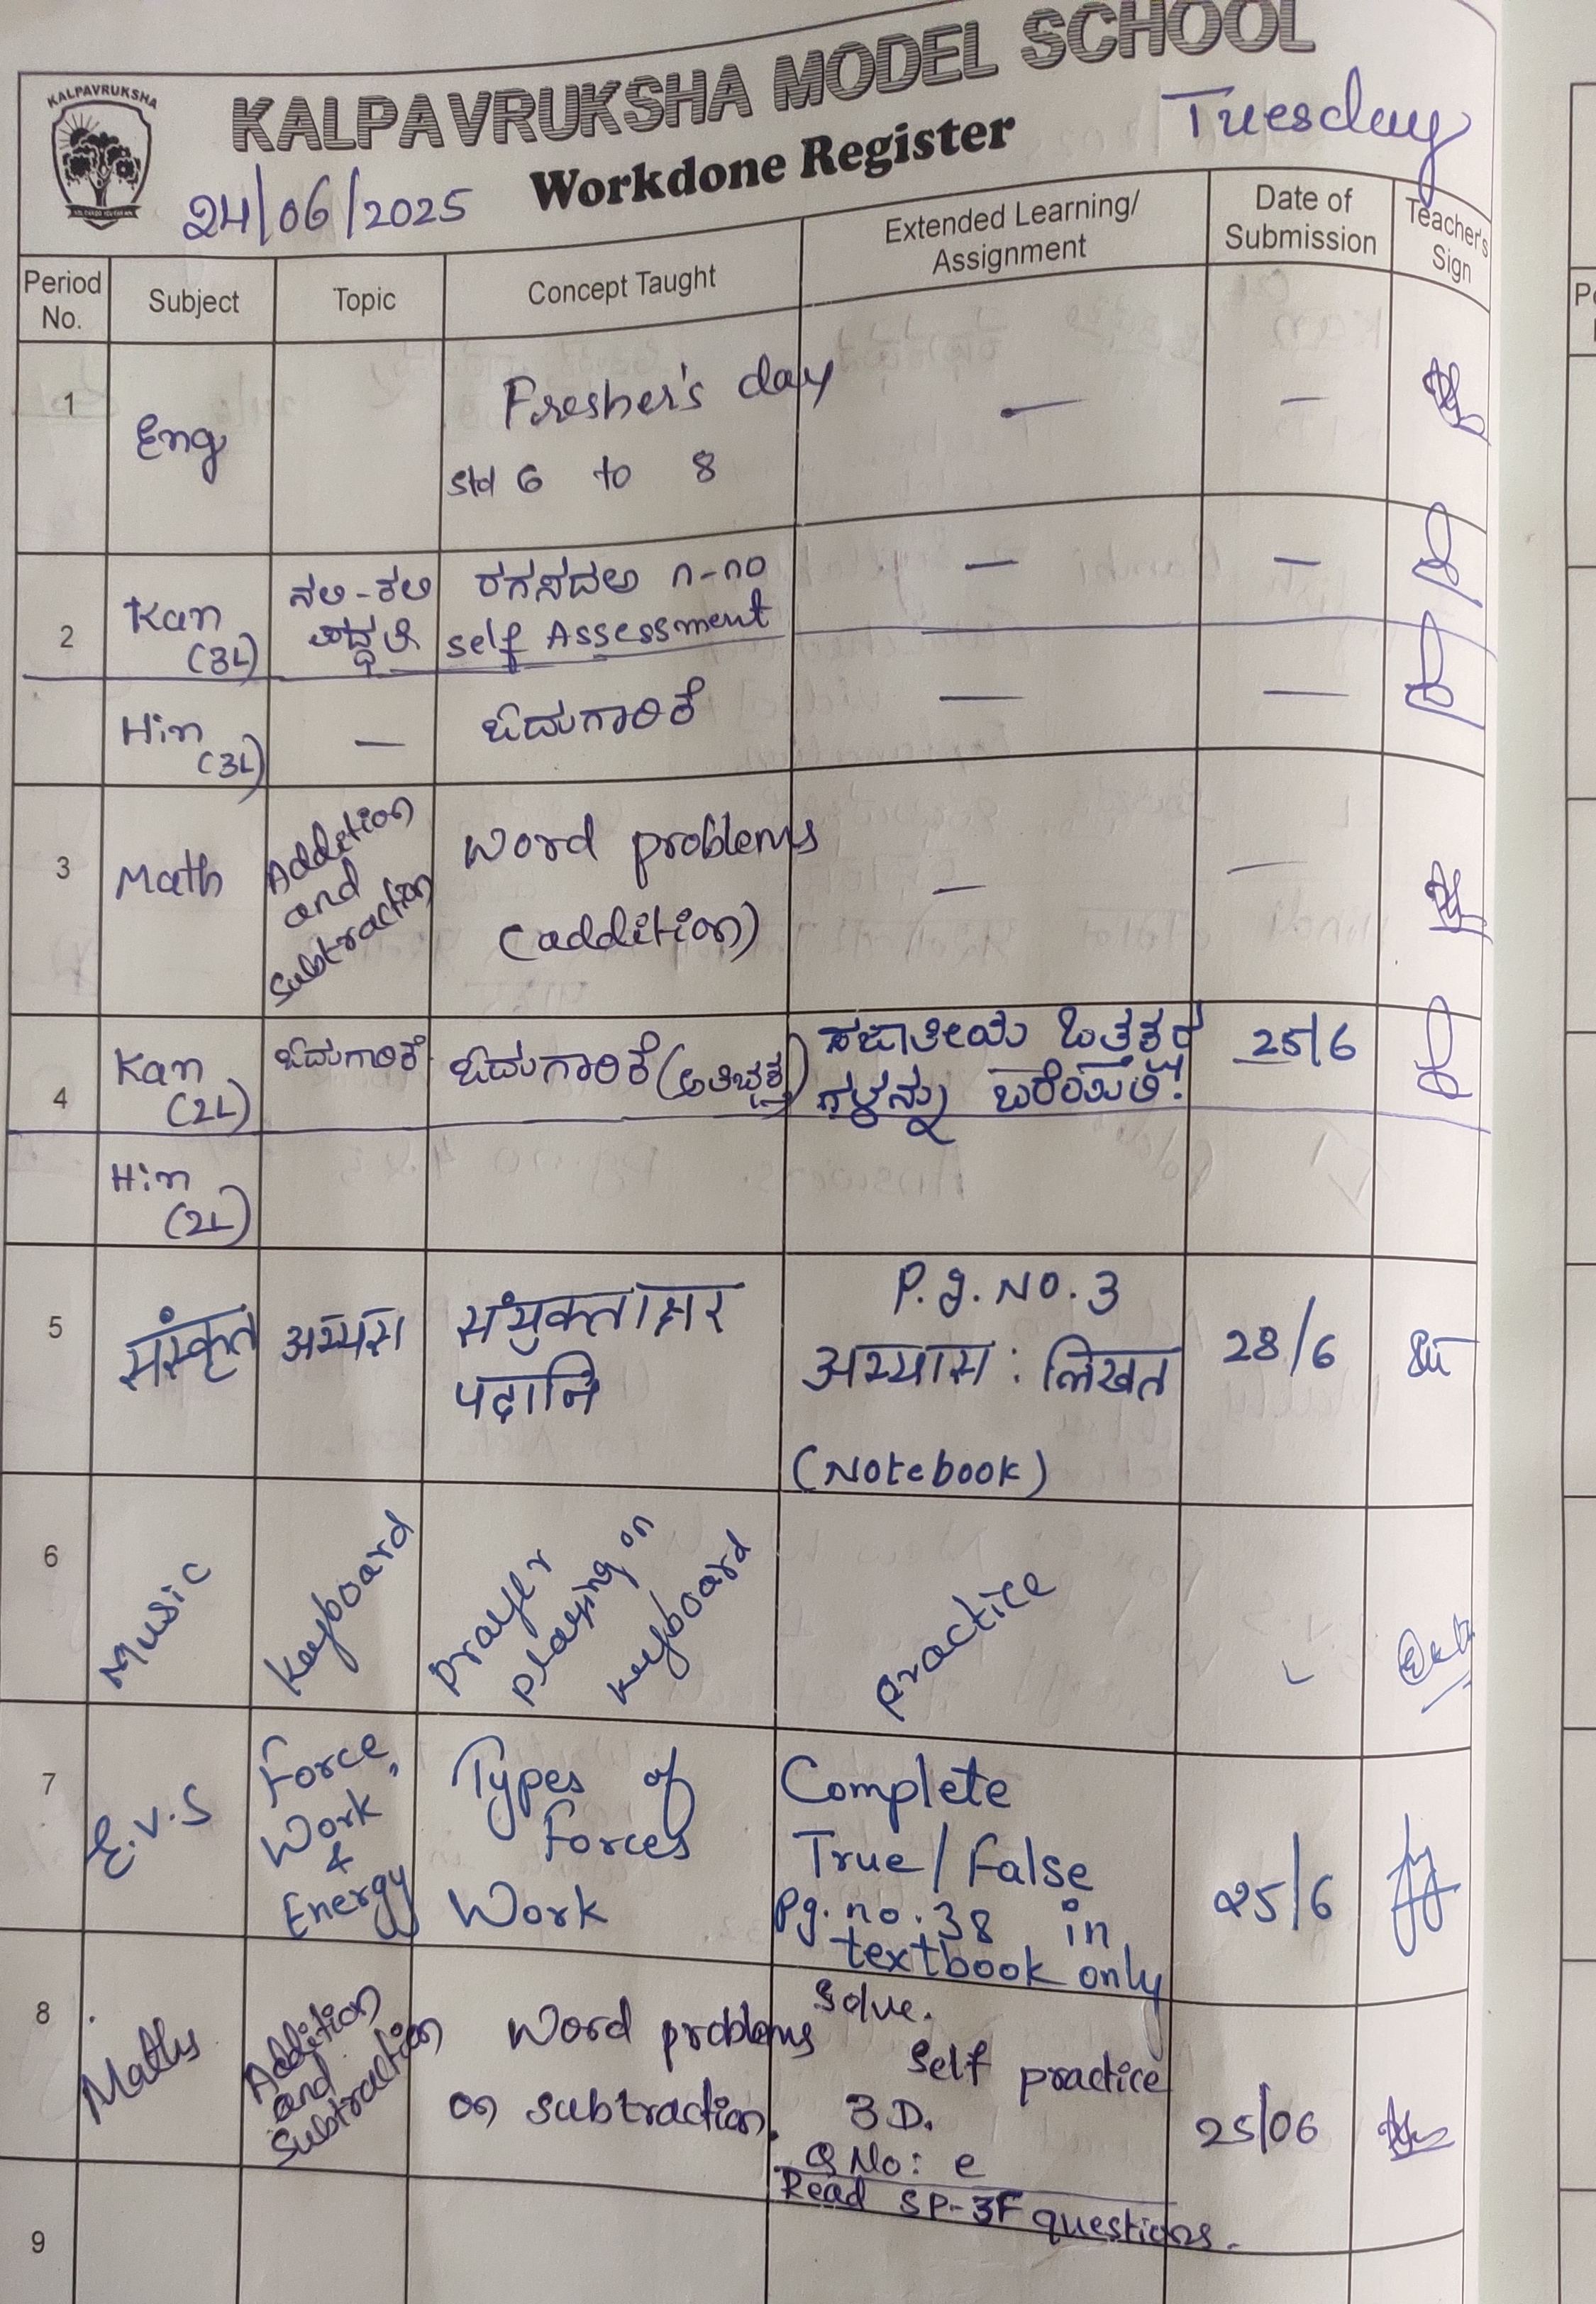 KALPAVRUKSHA
KALPAVRUKSHA MODEL SCHOOL
Workdone Register
Tuesday
24/06/2025
Period No.
Subject
Topic
Concept Taught
Extended Learning/
Assignment
Date of
Submission
Teacher's
Sign
1
Eng
Fresher's day
std 6 to 8
—
—
2
Kan
(3L)
ನಲಿ-ಕಲಿ
ಪದ್ಧತಿ
ರಗಸದಅ ೧-೧೦
self Assessment
—
—
Hin
(3L)
—
ಓದುಗಾರಿಕೆ
—
—
3
Math
Addition
and
Subtraction
Word problems
(addition)
—
—
4
Kan
(2L)
ಓದುಗಾರಿಕೆ
ಓದುಗಾರಿಕೆ
ಸಜಾತೀಯ ಒತ್ತಕ್ಷರ
ಗಳನ್ನು ಬರೆಯಿರಿ.
25/6
Hin
(2L)
5
संस्कृत
अभ्यास
संयुक्ताक्षर
पदानि
P.g. NO. 3
अभ्यास : लिखत
(Notebook)
28/6
6
Music
Keyboard
prayer
playing on
keyboard
practice
7
E.V.S
Force,
Work
&
Energy
Types of
Forces
Work
Complete
True/False
Pg. no. 38 in
textbook only
25/6
8
Maths
Addition
and
Subtraction
Word problems
on subtraction.
Solve.
Self practice
3D.
Q No: e
Read SP-3F questions.
25/06
9